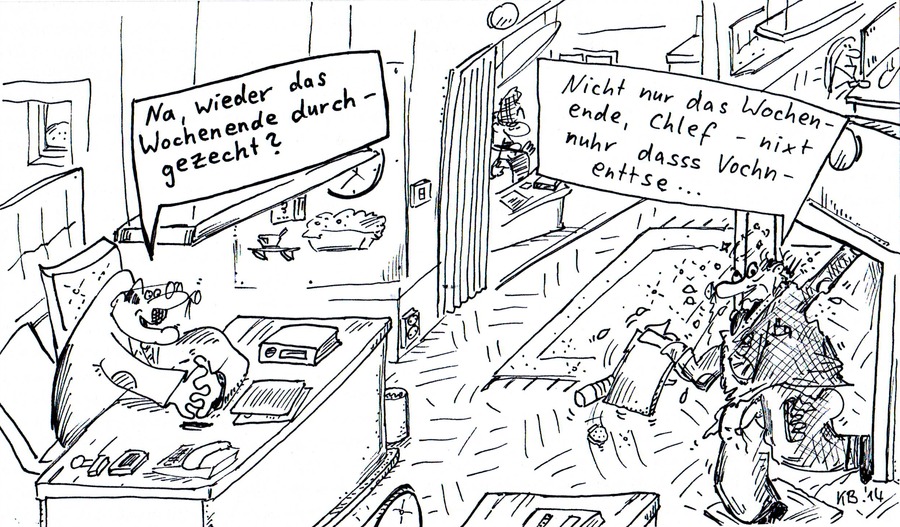 Na, wieder das
Wochenende durch-
gezecht?
Nicht nur das Wochen-
ende, Chlef - nixt
nuhr dasss Vochn-
enttse...
KB.'14